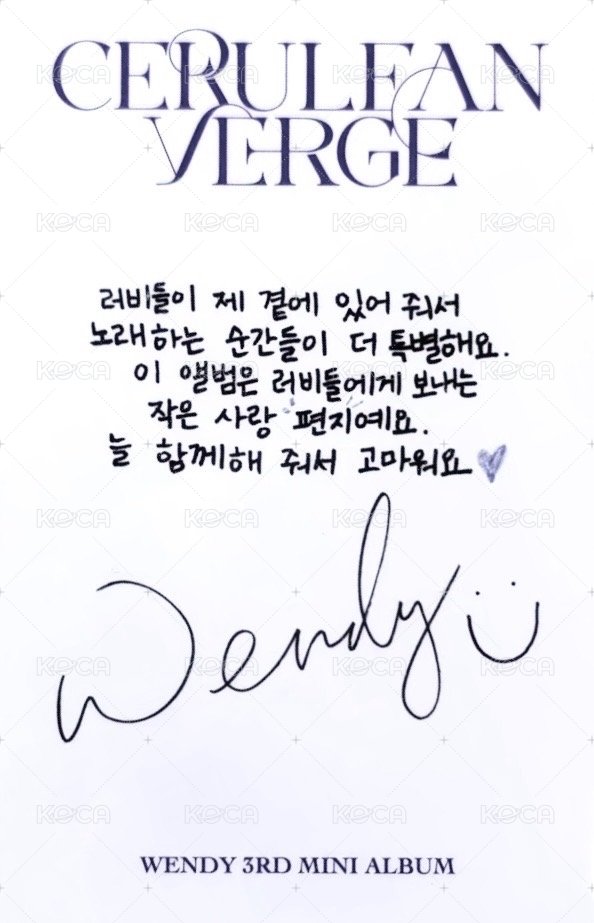 CERULEAN
VERGE
러비들이 제 곁에 있어 줘서
노래하는 순간들이 더 특별해요.
이 앨범은 러비들에게 보내는
작은 사랑 편지예요.
늘 함께해 줘서 고마워요
Wendy
WENDY 3RD MINI ALBUM
KOCA